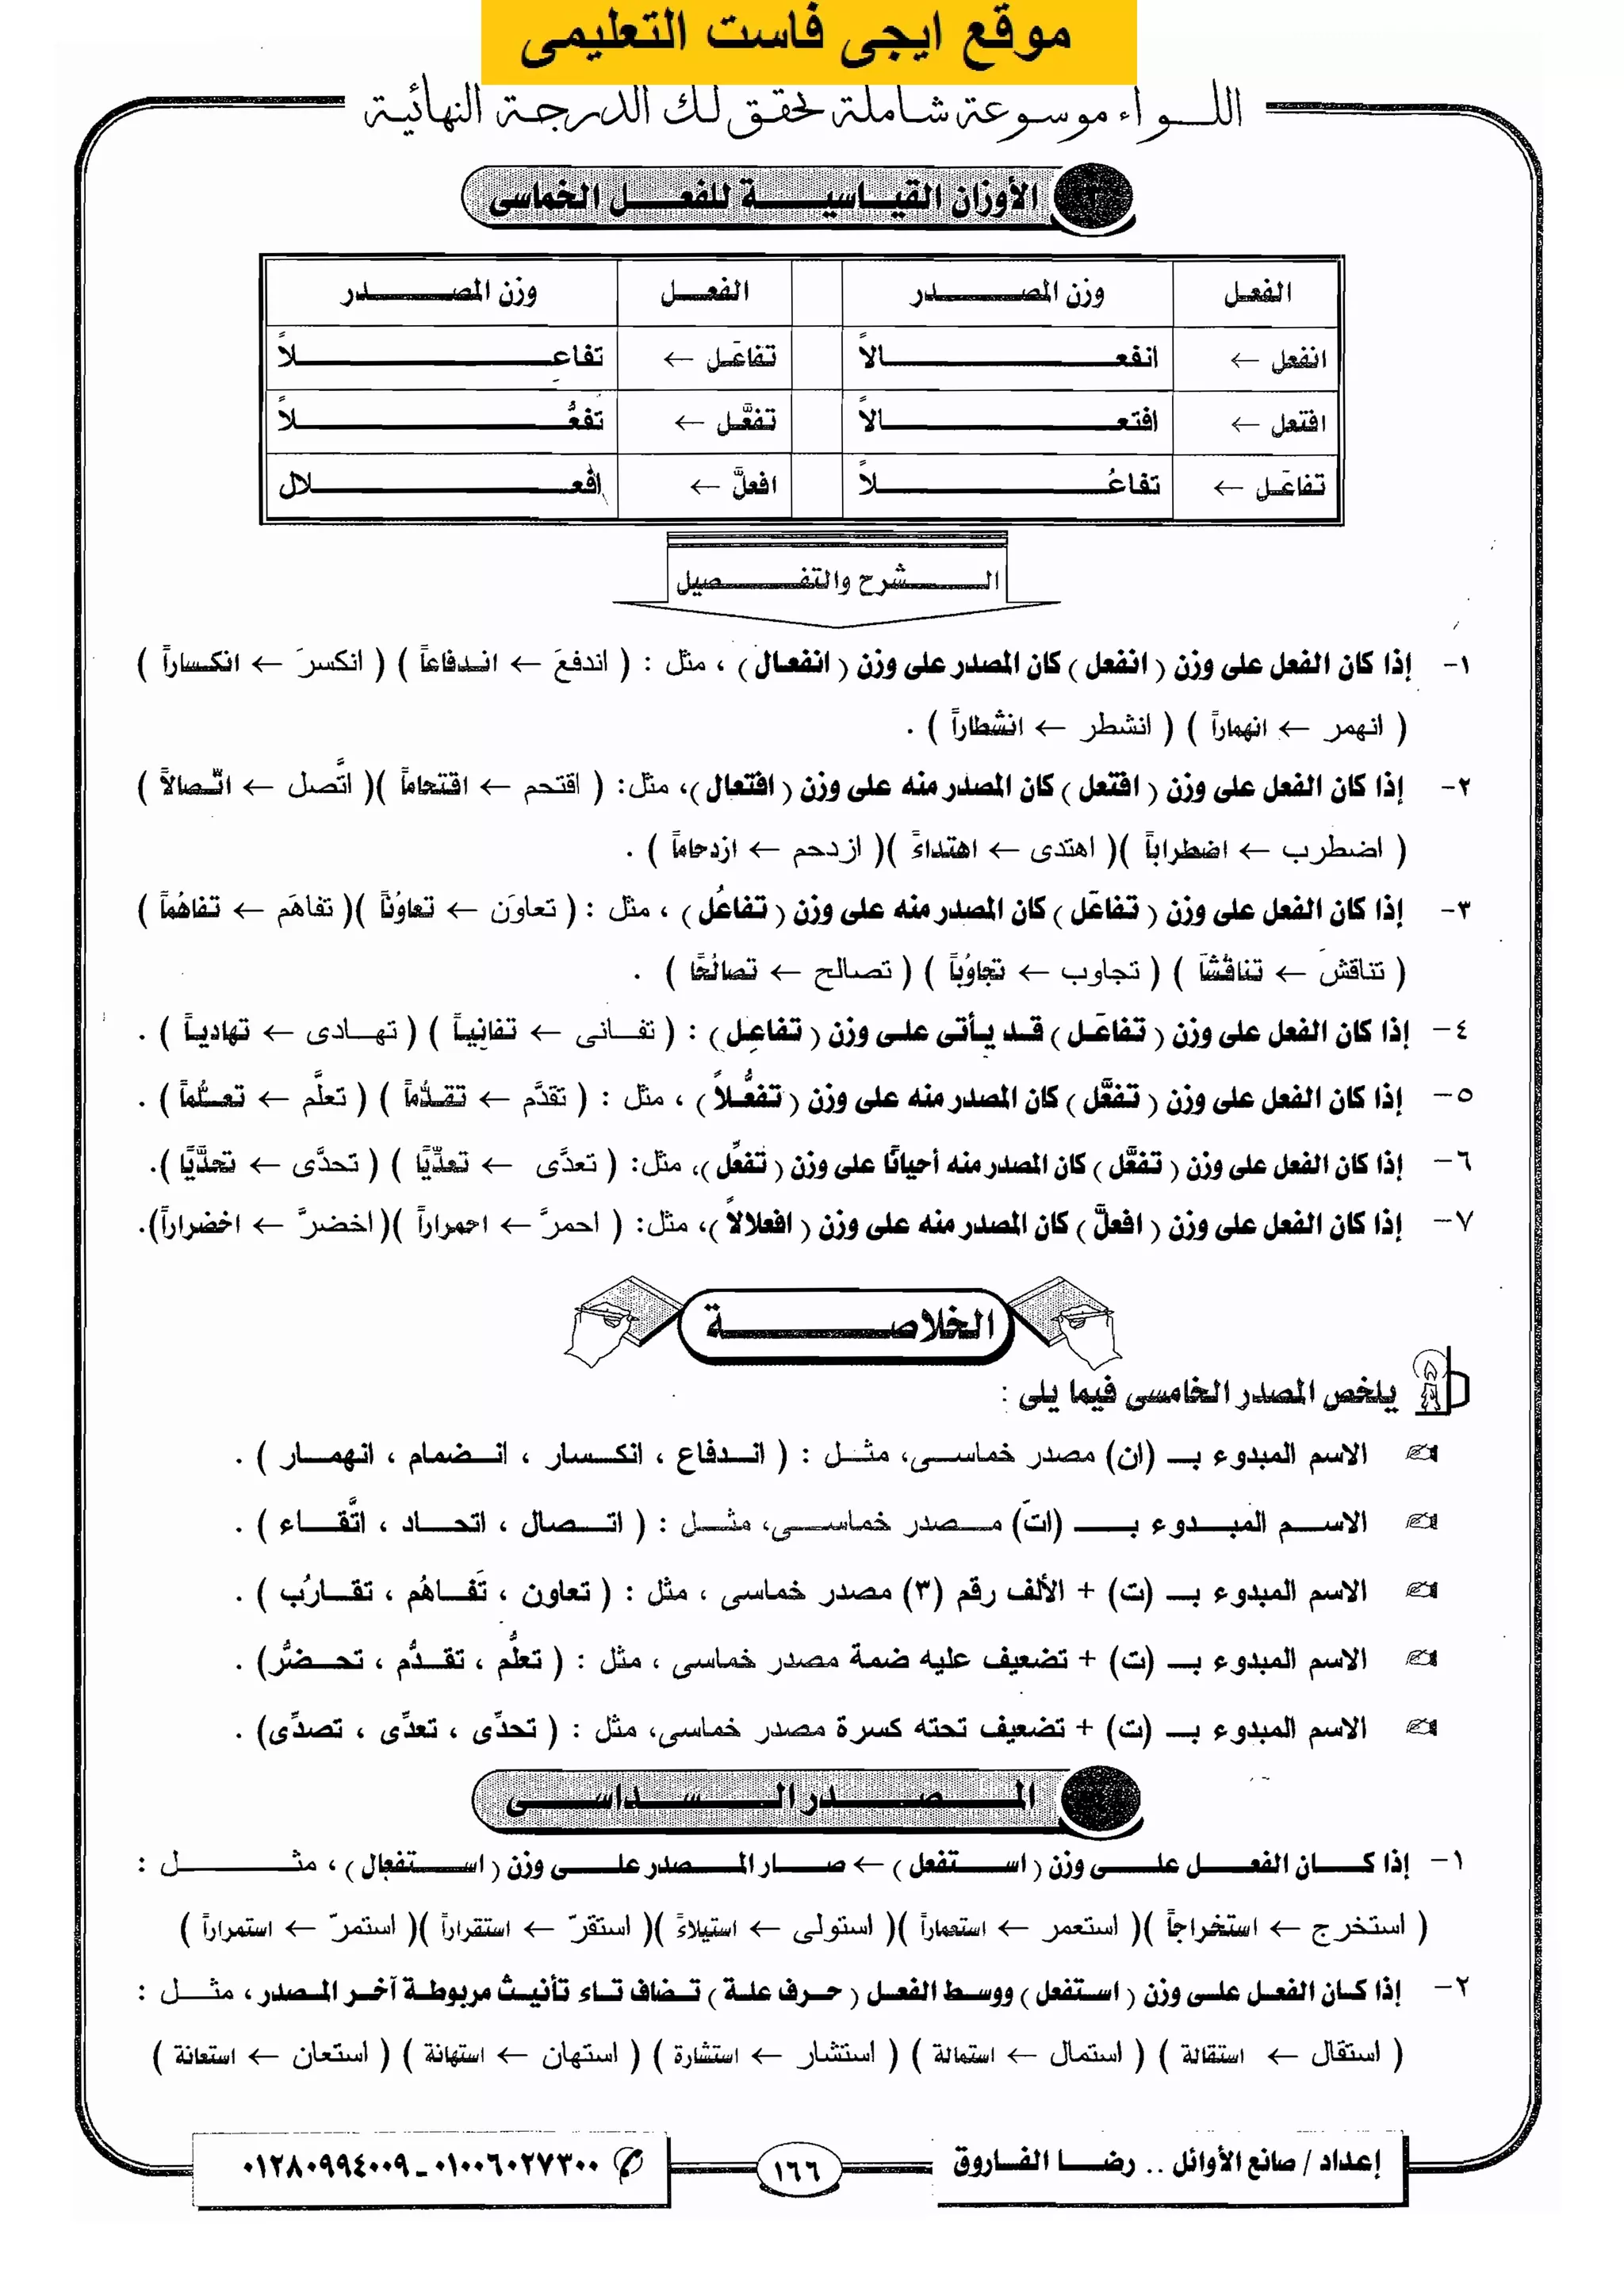 موقع ايجى فاست التعليمى
اللواء موسوعة شاملة تحقق لك الدرجة النهائية
الأوزان القياسية للفعل الخماسى
الفعل وزن المصدر الفعل وزن المصدر
انفعل ← انفعالاً تفاعَل ← تفاعِلاً
افتعل ← افتعالاً تفعَّل ← تفعُّلاً
تفاعَل ← تفاعُلاً افعلَّ ← افعلال
الشرح والتفصيل
١- إذا كان الفعل على وزن ( انفعل ) كان المصدر على وزن ( انفعال ) ، مثل : ( اندفعَ ← اندفاعاً ) ( انكسرَ ← انكساراً )
( انهمر ← انهماراً ) ( انشطر ← انشطاراً ) .
٢- إذا كان الفعل على وزن ( افتعل ) كان المصدر منه على وزن ( افتعال )، مثل: ( اقتحم ← اقتحاماً )( اتَّصل ← اتّصالاً )
( اضطرب ← اضطراباً )( اهتدى ← اهتداءً )( ازدحم ← ازدحاماً ) .
٣- إذا كان الفعل على وزن ( تفاعَل ) كان المصدر منه على وزن ( تفاعُل ) ، مثل : ( تعاوَن ← تعاوُناً )( تفاهَم ← تفاهُماً )
( تناقشَ ← تناقُشاً ) ( تجاوب ← تجاوُباً ) ( تصالح ← تصالُحًا ) .
٤- إذا كان الفعل على وزن ( تفاعَل ) قد يأتى على وزن ( تفاعِل ) : ( تفانى ← تفانِياً ) ( تهادى ← تهادياً ) .
٥- إذا كان الفعل على وزن ( تفعَّل ) كان المصدر منه على وزن ( تفعُّلاً ) ، مثل : ( تقدَّم ← تقدُّماً ) ( تعلَّم ← تعلُّماً ) .
٦- إذا كان الفعل على وزن ( تفعَّل ) كان المصدر منه أحيانًا على وزن ( تفعِّل )، مثل: ( تعدَّى ← تعدِّيًا ) ( تحدَّى ← تحدِّيًا ).
٧- إذا كان الفعل على وزن ( افعلَّ ) كان المصدر منه على وزن ( افعلالاً )، مثل: ( احمرَّ ← احمراراً )( اخضرَّ ← اخضراراً).
الخلاصة
يلخص المصدر الخامسى فيما يلى :
الاسم المبدوء بـ (ان) مصدر خماسى، مثل : ( اندفاع ، انكسار ، انضمام ، انهمار ) .
الاسم المبدوء بـ (اتَ) مصدر خماسى، مثل : ( اتصال ، اتحاد ، اتَّقاء ) .
الاسم المبدوء بـ (ت) + الألف رقم (٣) مصدر خماسى ، مثل : ( تعاون ، تَفاهُم ، تقارُب ) .
الاسم المبدوء بـ (ت) + تضعيف عليه ضمة مصدر خماسى ، مثل : ( تعلُّم ، تقدُّم ، تحضُّر) .
الاسم المبدوء بـ (ت) + تضعيف تحته كسرة مصدر خماسى، مثل : ( تحدِّى ، تعدِّى ، تصدِّى) .
المصدر السداسى
١- إذا كان الفعل على وزن ( استفعل ) ← صار المصدر على وزن ( استفعال ) ، مثل :
( استخرج ← استخراجاً )( استعمر ← استعماراً )( استولى ← استيلاءً )( استقرّ ← استقراراً )( استمرّ ← استمراراً )
٢- إذا كان الفعل على وزن ( استفعل ) ووسط الفعل ( حرف علة ) تضاف تاء تأنيث مربوطة آخر المصدر ، مثل :
( استقال ← استقالة ) ( استمال ← استمالة ) ( استشار ← استشارة ) ( استهان ← استهانة ) ( استعان ← استعانة )
إعداد / صانع الأوائل .. رضا الفاروق ١٦٦ ٠١٠٠٦٠٢٧٣٠٠ - ٠١٢٨٠٩٩٤٠٠٩